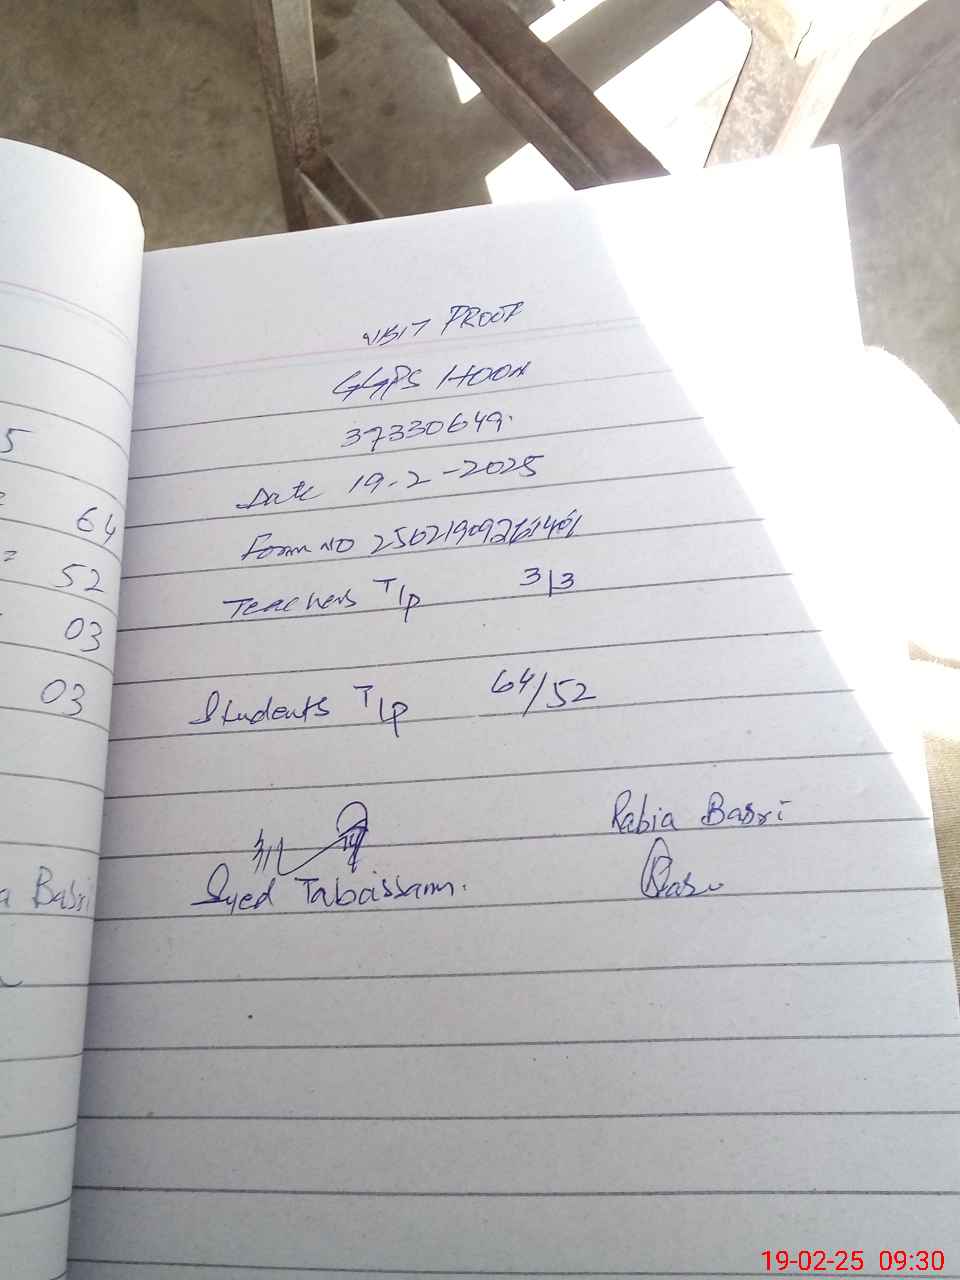 5
64
52
03
03
a Basri
VISIT PROOF
GGPS HOON
37330649.
Date 19.2-2025
Form NO
Teachers T/p 3/3
Students T/p 64/52
Rabia Basri
Syed Tabassam.
19-02-25 09:30